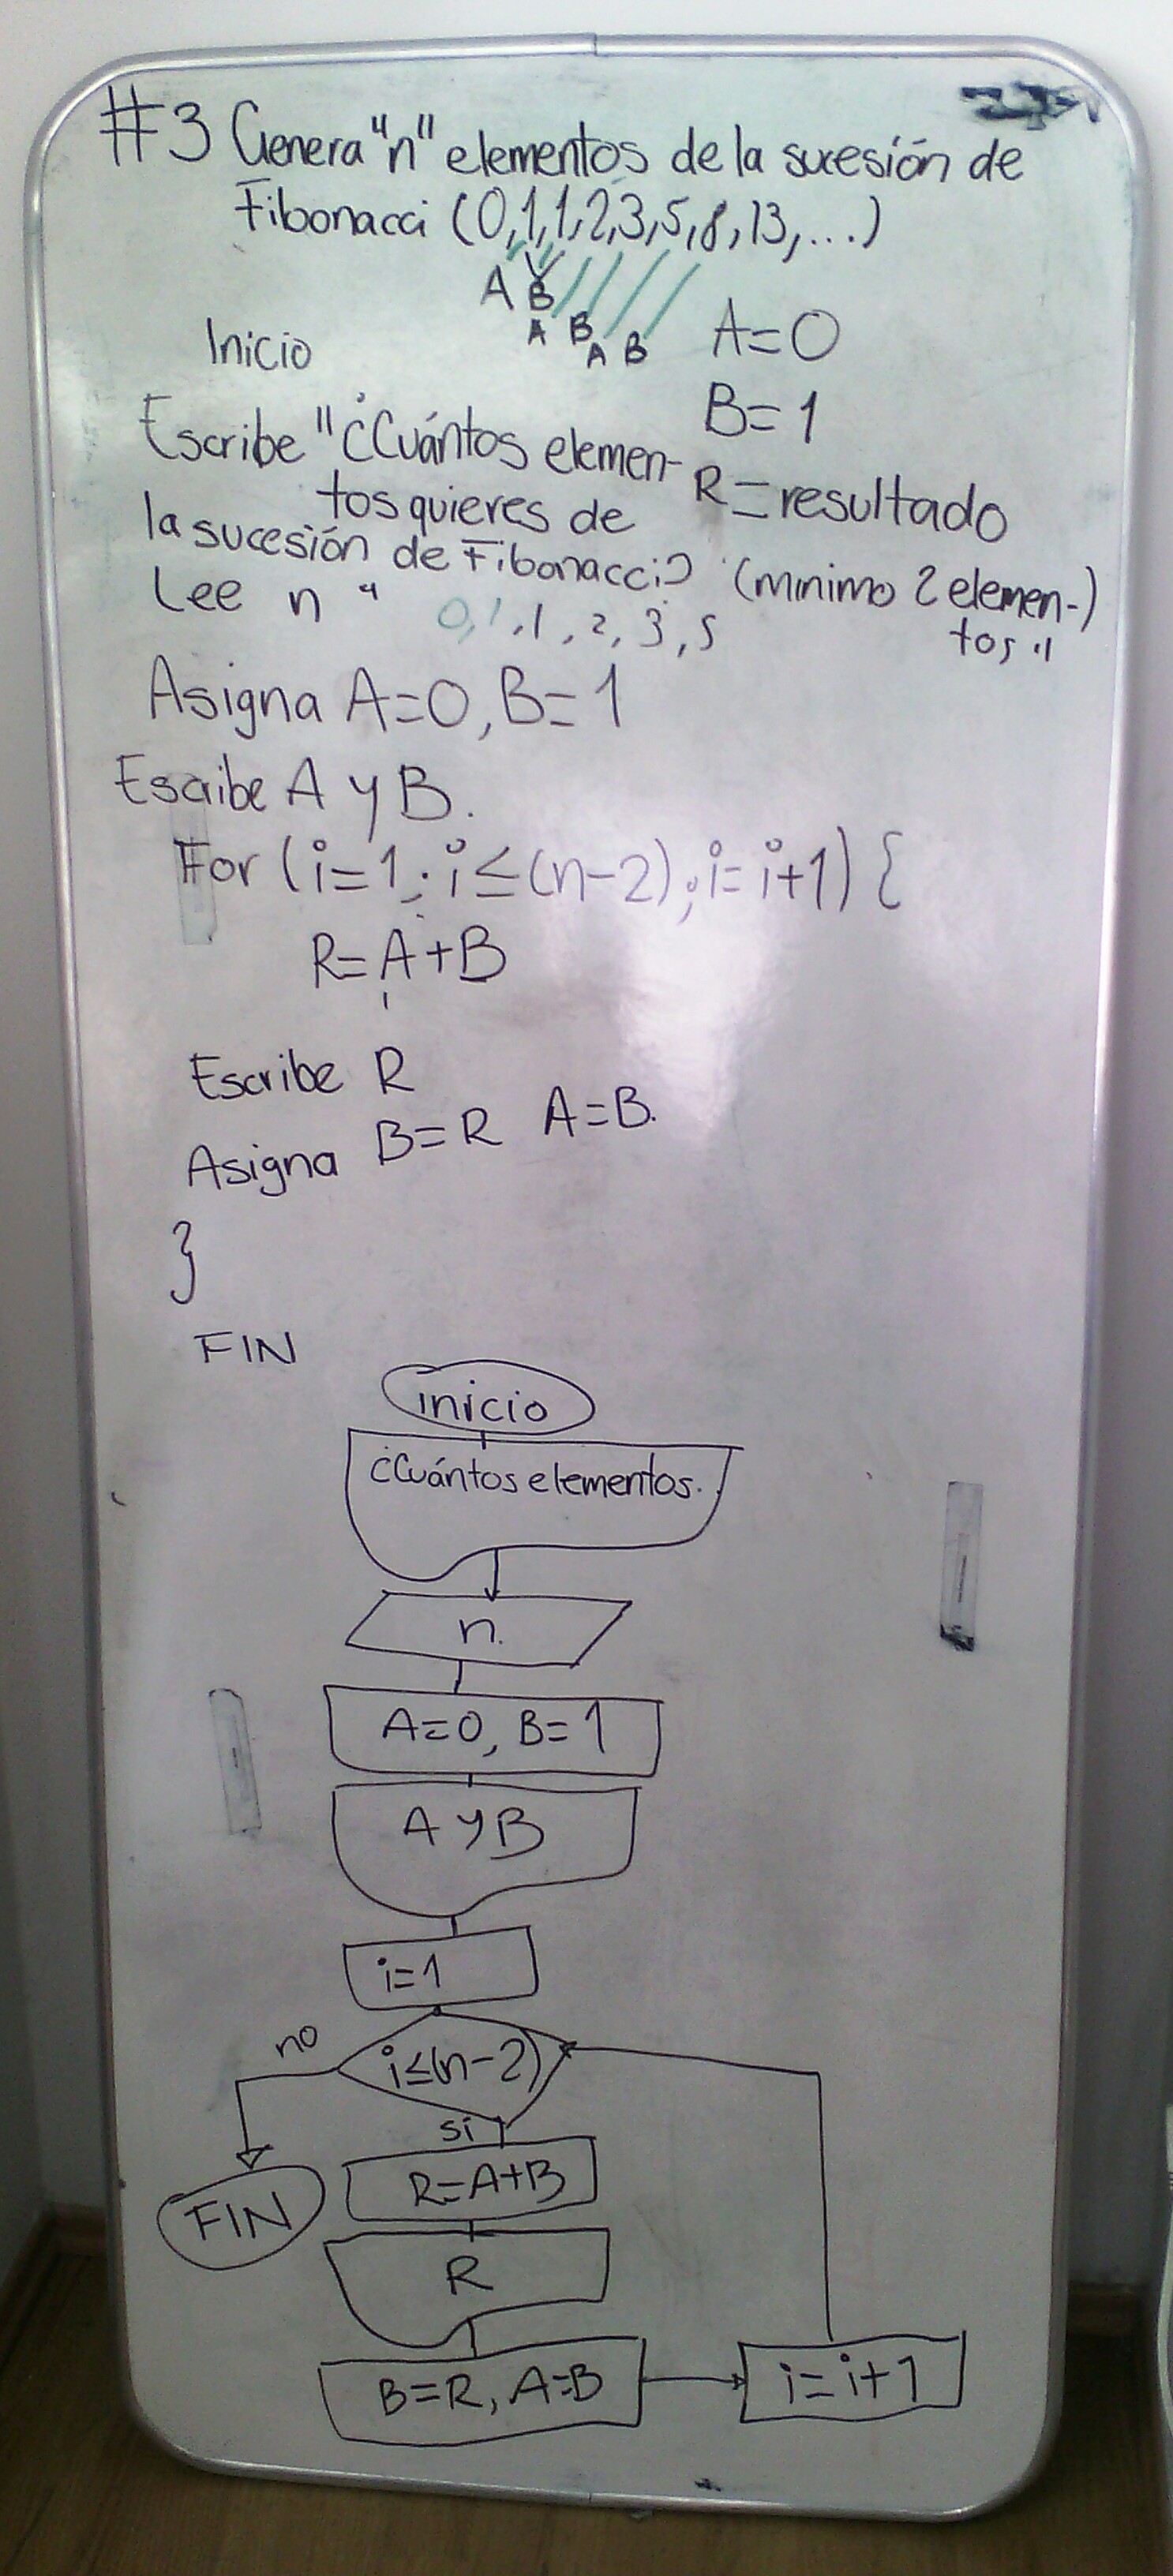 #3 Genera "n" elementos de la sucesión de
Fibonacci (0,1,1,2,3,5,8,13,...)
A B
A B
A B
A=0
B=1
R=resultado
Inicio
Escribe "¿Cuántos elemen-
tos quieres de
la sucesión de Fibonacci? (minimo 2 elemen-)
tos "
Lee n "
0,1,1,2,3,5
Asigna A=0, B=1
Escribe A y B.
For (i=1; i≤(n-2); i=i+1) {
R=A+B
Escribe R
Asigna B=R A=B.
}
FIN
inicio
¿Cuántos elementos..
n.
A=0, B=1
A y B
i=1
i≤(n-2)
no
si
FIN
R=A+B
R
B=R, A=B
i=i+1